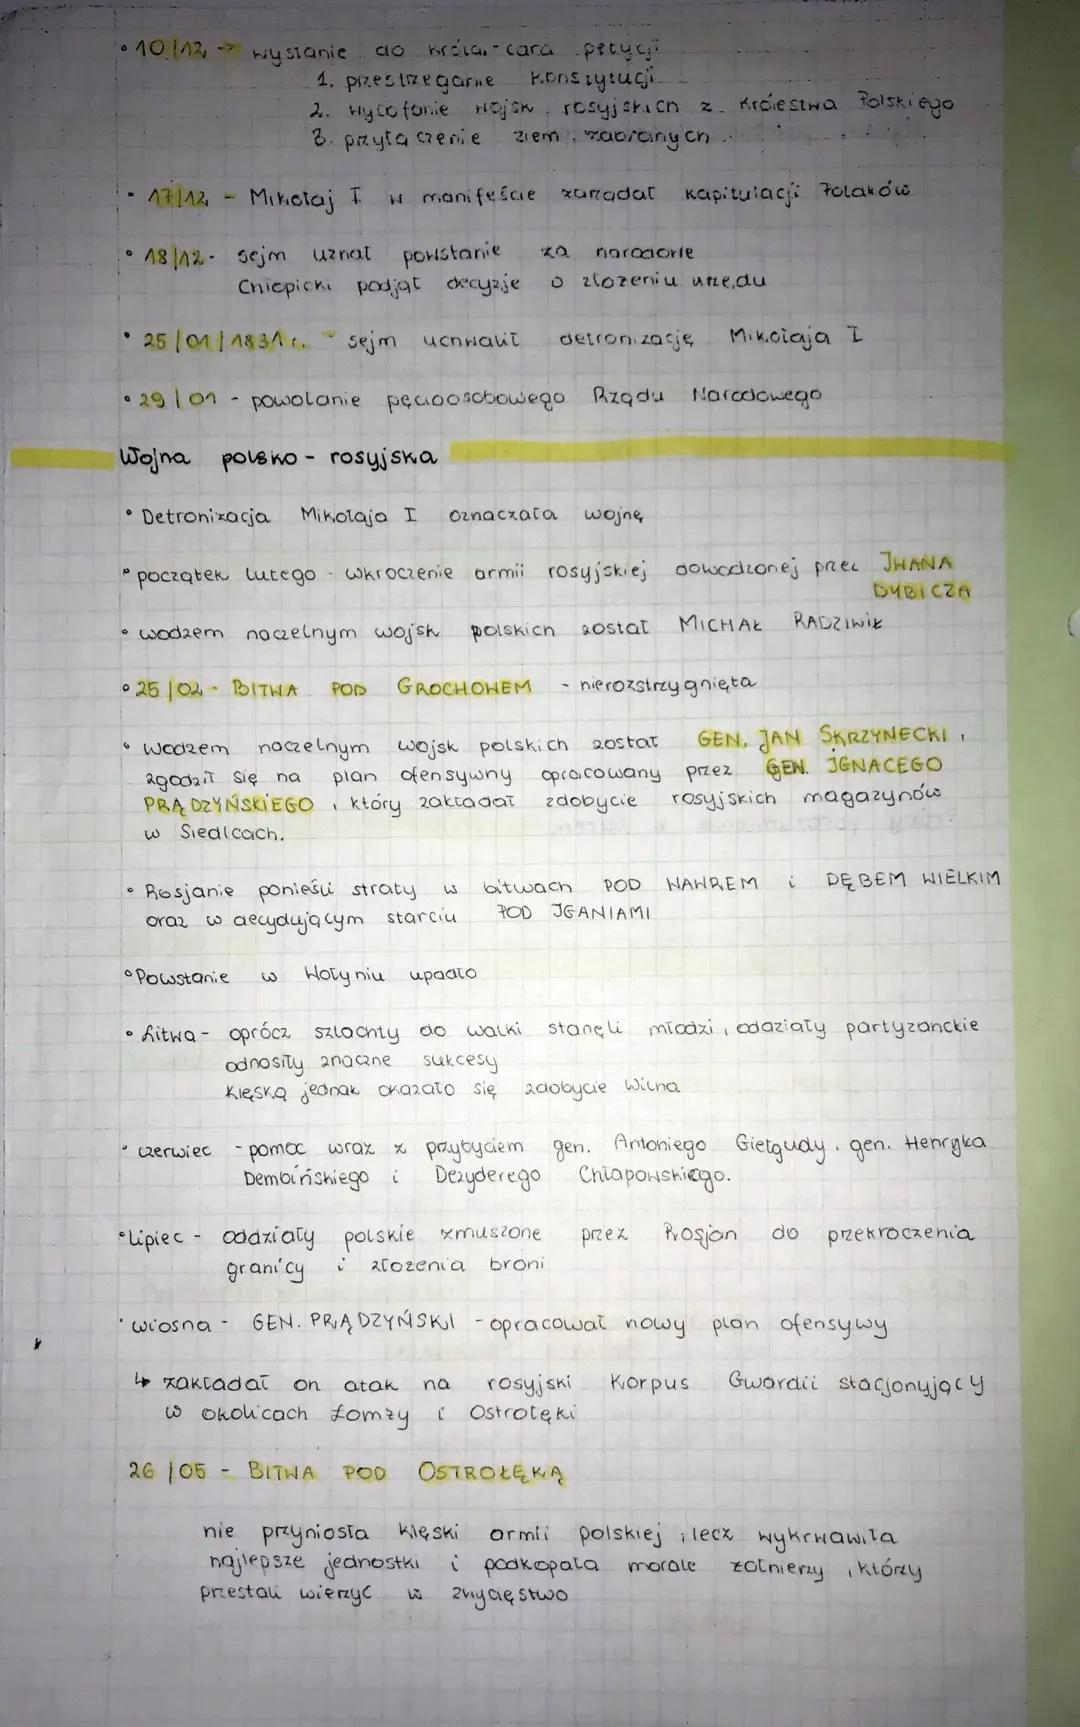 • 10/12 → wysłanie do króla-cara petycji
1. przestrzeganie Konstytucji
2. wycofanie wojsk rosyjskich z Królestwa Polskiego
3. przyłączenie ziem zabranych
• 17/12 - Mikołaj I w manifeście zażądał kapitulacji Polaków
• 18/12 - sejm uznał powstanie za narodowe
Chłopicki podjął decyzję o złożeniu urzędu
• 25/01/1831 r. - sejm uchwalił detronizację Mikołaja I
• 29/01 - powołanie pęcioosobowego Rządu Narodowego
Wojna polsko - rosyjska
• Detronizacja Mikołaja I oznaczała wojnę
• początek lutego - wkroczenie armii rosyjskiej dowodzonej przez IWANA
DYBICZA
• wodzem naczelnym wojsk polskich został MICHAŁ RADZIWIŁ
• 25/02 - BITWA POD GROCHOWEM - nierozstrzygnięta
• Wodzem naczelnym wojsk polskich został GEN. JAN SKRZYNECKI,
zgodził się na plan ofensywny opracowany przez GEN. IGNACEGO
PRĄDZYŃSKIEGO, który zakładał zdobycie rosyjskich magazynów
w Siedlcach.
• Rosjanie ponieśli straty w bitwach POD WAWREM i DĘBEM WIELKIM
oraz w decydującym starciu POD IGANIAMI
• Powstanie w Wołyniu upadło
• Litwa - oprócz szlachty do walki stanęli młodzi, oddziały partyzanckie
odnosiły znaczne sukcesy
Klęską jednak okazało się zdobycie Wilna
• czerwiec - pomoc wraz z przybyciem gen. Antoniego Giełgudy, gen. Henryka
Dembińskiego i Dezyderego Chłapowskiego.
• Lipiec - oddziały polskie zmuszone przez Rosjan do przekroczenia
granicy i złożenia broni
• wiosna - GEN. PRĄDZYŃSKI - opracował nowy plan ofensywy
↳ zakładał on atak na rosyjski Korpus Gwardii stacjonujący
w okolicach Łomży i Ostrołęki
26/05 - BITWA POD OSTROŁĘKĄ
nie przyniosła klęski armii polskiej, lecz wykrwawiła
najlepsze jednostki i podkopała morale żołnierzy, którzy
przestali wierzyć w zwycięstwo